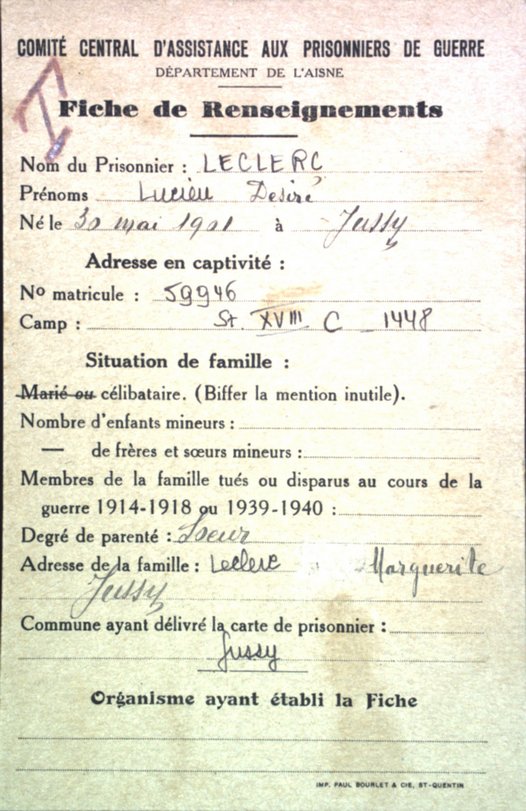 COMITÉ CENTRAL D'ASSISTANCE AUX PRISONNIERS DE GUERRE
DÉPARTEMENT DE L'AISNE
Fiche de Renseignements
Nom du Prisonnier : LECLERC
Prénoms Lucien Desiré
Né le 30 mai 1901 à Jussy
Adresse en captivité :
No matricule : 59946
Camp : St. XVIII C 1448
Situation de famille :
Marié ou célibataire. (Biffer la mention inutile).
Nombre d'enfants mineurs :
— de frères et sœurs mineurs :
Membres de la famille tués ou disparus au cours de la
guerre 1914-1918 ou 1939-1940 :
Degré de parenté : Soeur
Adresse de la famille : Leclerc Marguerite
Jussy
Commune ayant délivré la carte de prisonnier :
Jussy
Organisme ayant établi la Fiche
IMP. PAUL BOURLET & CIE, ST-QUENTIN